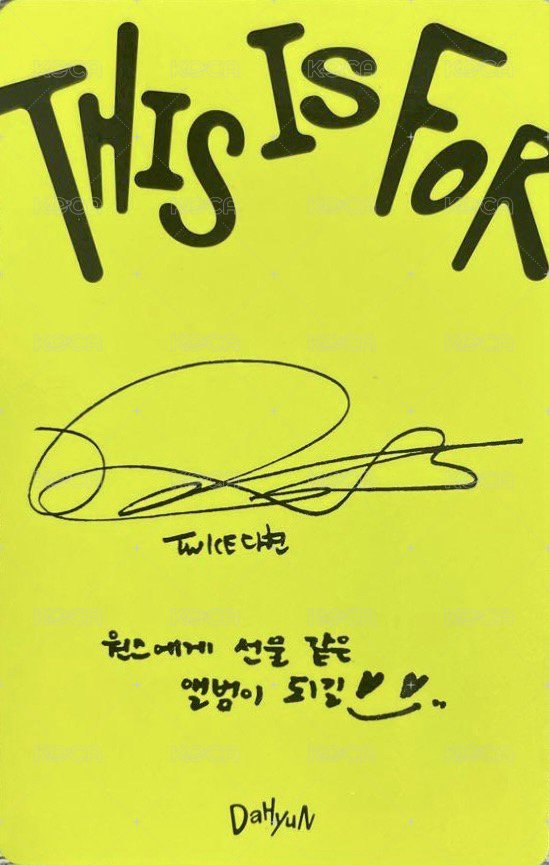 THIS IS FOR
TWICE 다현
원스에게 선물 같은
앨범이 되길
DaHyuN